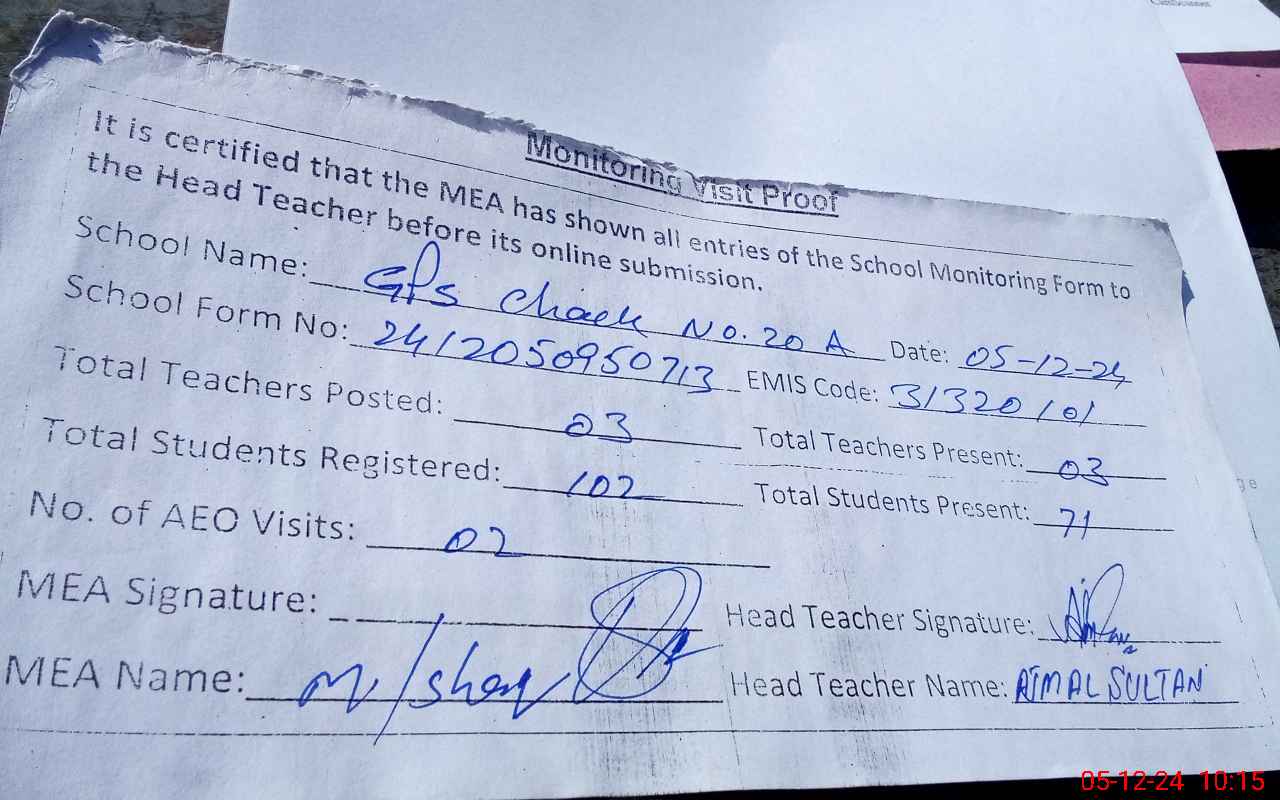 Monitoring Visit Proof
It is certified that the MEA has shown all entries of the School Monitoring Form to
the Head Teacher before its online submission.
School Name: GPS Chack No. 20 A Date: 05-12-24
School Form No: 2412050950713 EMIS Code: 31320101
Total Teachers Posted: 03 Total Teachers Present: 03
Total Students Registered: 102 Total Students Present: 71
No. of AEO Visits: 02
MEA Signature: Head Teacher Signature:
MEA Name: Head Teacher Name: AJMAL SULTAN
05-12-24 10:15